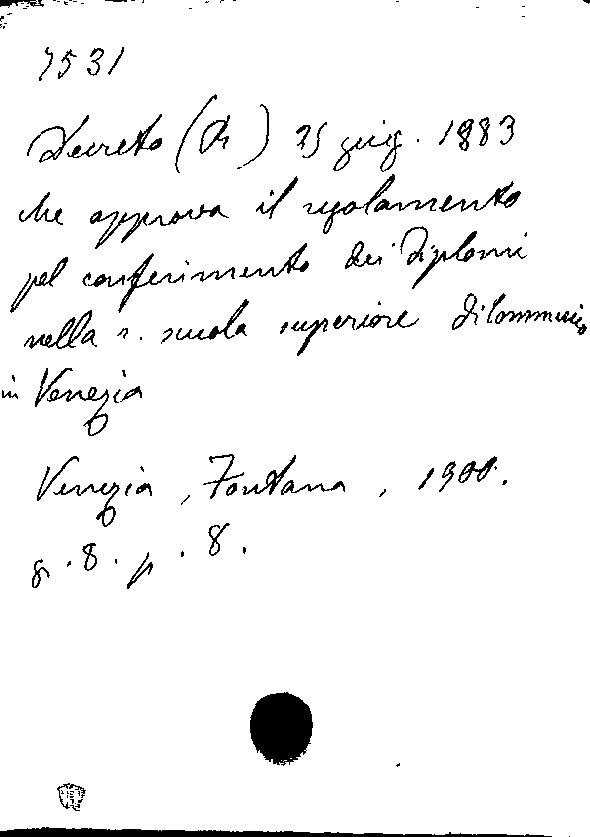 7531
Decreto (R) 25 giug. 1883
che approva il regolamento
pel conferimento dei diplomi
nella r. scuola superiore di Commercio
in Venezia
Venezia, Fontana, 1900.
8. p. 8.